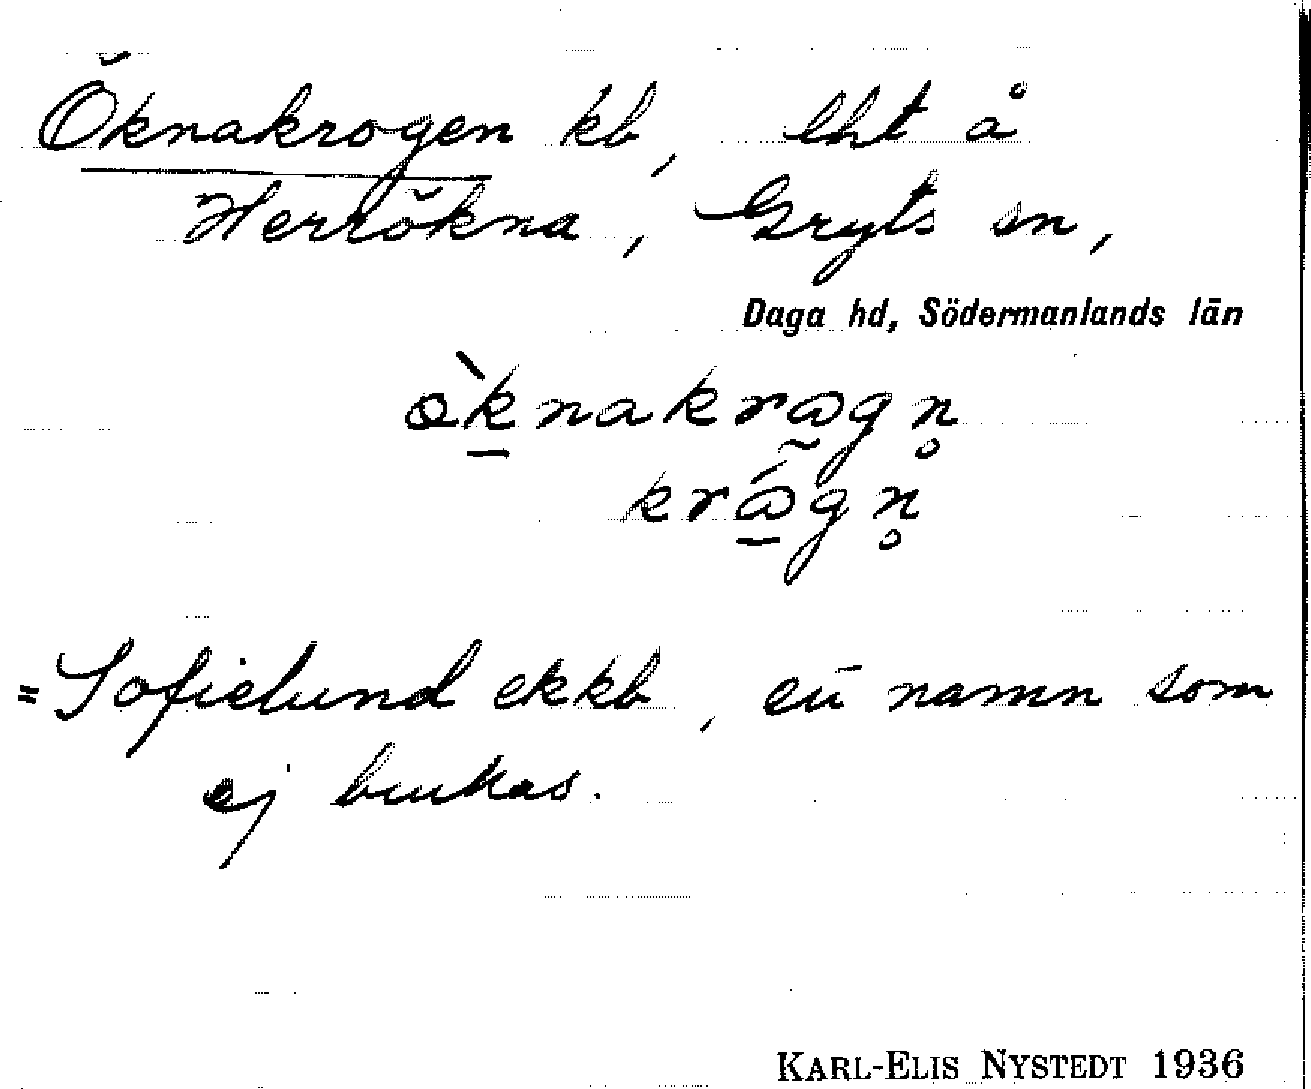 Öknakrogen kb, lht å
Herrökna, Gryts sn,
Daga hd, Södermanlands län
ö̀knakrɷgn̥
krɷ́gn̥
= Sofielund ekkb, ett namn som
ej brukas.
KARL-ELIS NYSTEDT 1936